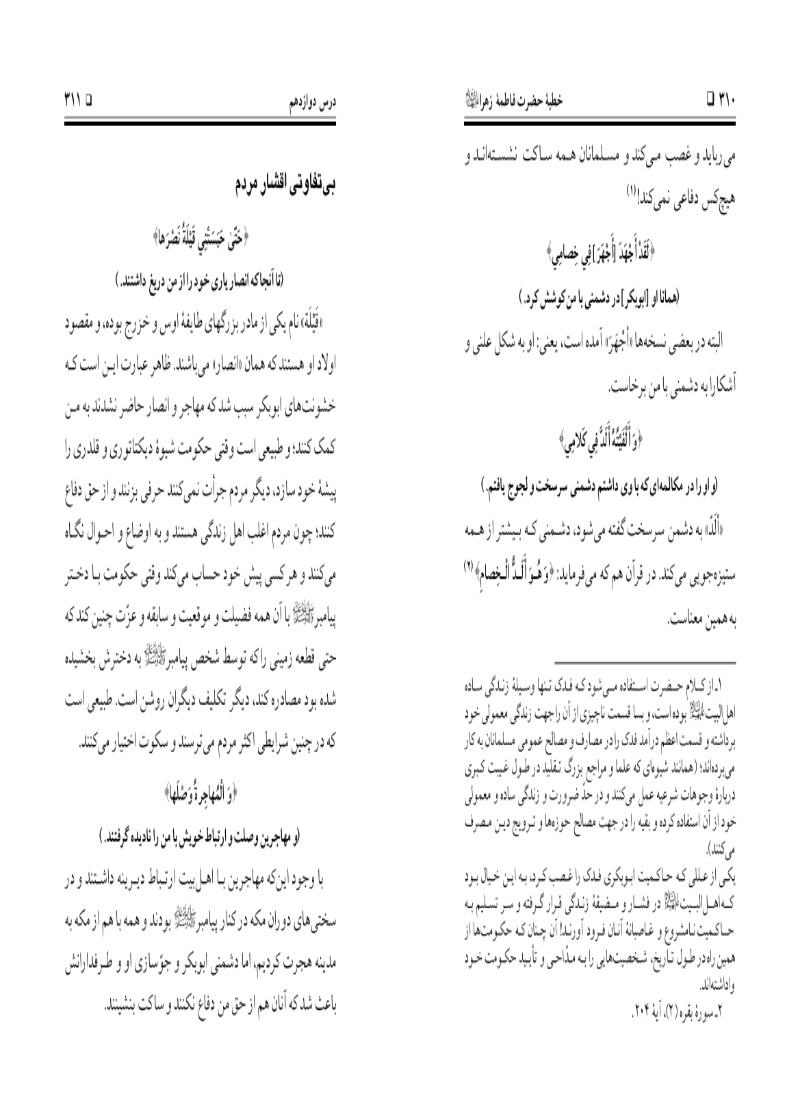 ۳۱۰ ❑ خطبۀ حضرت فاطمۀ زهرا(علیها السلام)
می‌رباید و غصب می‌کند و مسلمانان همه ساکت نشسته‌اند و
هیچ‌کس دفاعی نمی‌کند!(۱)
﴿لَقَدْ أَجْهَدَ [أَجْهَرَ] فِي خِصامِي﴾
(همانا او [ابوبکر] در دشمنی با من کوشش کرد.)
البته در بعضی نسخه‌ها «أَجْهَرَ» آمده است، یعنی: او به شکل علنی و
آشکارا به دشمنی با من برخاست.
﴿وَ أَلْفَيْتُهُ أَلَدَّ فِي كَلامِي﴾
(و او را در مکالمه‌ای که با وی داشتم دشمنی سرسخت و لجوج یافتم.)
«أَلَدّ» به دشمن سرسخت گفته می‌شود، دشمنی که بیشتر از همه
ستیزه‌جویی می‌کند. در قرآن هم که می‌فرماید: ﴿وَ هُوَ أَلَدُّ الْخِصامِ﴾(۲)
به همین معناست.
۱ـ از کلام حضرت استفاده می‌شود که فدک تنها وسیلۀ زندگی ساده
اهل‌البیت(علیهم السلام) بوده است، و بسا قسمت ناچیزی از آن را جهت زندگی معمولی خود
برداشته و قسمت اعظم درآمد فدک را در مصارف و مصالح عمومی مسلمانان به کار
می‌برده‌اند؛ (همانند شیوه‌ای که علما و مراجع بزرگ تقلید در طول غیبت کبری
دربارۀ وجوهات شرعیه عمل می‌کنند و در حدّ ضرورت و زندگی ساده و معمولی
خود از آن استفاده کرده و بقیه را در جهت مصالح حوزه‌ها و ترویج دین مصرف
می‌کنند).
یکی از عللی که حاکمیت ابوبکری فدک را غصب کرد، به این خیال بود
که اهل‌البیت(علیهم السلام) در فشار و مضیقۀ زندگی قرار گرفته و سر تسلیم به
حاکمیت نامشروع و غاصبانۀ آنان فرود آورند! آن چنان که حکومت‌ها از
همین راه در طول تاریخ، شخصیت‌هایی را به مدّاحی و تأیید حکومت خود
واداشته‌اند.
۲ـ سورۀ بقره (۲)، آیۀ ۲۰۴.
درس دوازدهم ❑ ۳۱۱
بی‌تفاوتی اقشار مردم
﴿حَتّىٰ حَبَسَتْنِي قَيْلَةُ نَصْرَها﴾
(تا آنجا که انصار یاری خود را از من دریغ داشتند.)
«قَیْلَة» نام یکی از مادر بزرگهای طایفۀ اوس و خزرج بوده، و مقصود
اولاد او هستند که همان «انصار» می‌باشند. ظاهر عبارت این است که
خشونت‌های ابوبکر سبب شد که مهاجر و انصار حاضر نشدند به من
کمک کنند؛ و طبیعی است وقتی حکومت شیوۀ دیکتاتوری و قلدری را
پیشۀ خود سازد، دیگر مردم جرأت نمی‌کنند حرفی بزنند و از حق دفاع
کنند؛ چون مردم اغلب اهل زندگی هستند و به اوضاع و احوال نگاه
می‌کنند و هر کسی پیش خود حساب می‌کند وقتی حکومت با دختر
پیامبر ﷺ با آن همه فضیلت و موقعیت و سابقه و عزّت چنین کند که
حتی قطعه زمینی را که توسط شخص پیامبر ﷺ به دخترش بخشیده
شده بود مصادره کند، دیگر تکلیف دیگران روشن است. طبیعی است
که در چنین شرایطی اکثر مردم می‌ترسند و سکوت اختیار می‌کنند.
﴿وَ الْمُهاجِرَةُ وَصْلَها﴾
(و مهاجرین وصلت و ارتباط خویش با من را نادیده گرفتند.)
با وجود این‌که مهاجرین با اهل‌بیت ارتباط دیرینه داشتند و در
سختی‌های دوران مکه در کنار پیامبر ﷺ بودند و همه با هم از مکه به
مدینه هجرت کردیم، اما دشمنی ابوبکر و جوّسازی او و طرفدارانش
باعث شد که آنان هم از حق من دفاع نکنند و ساکت بنشینند.